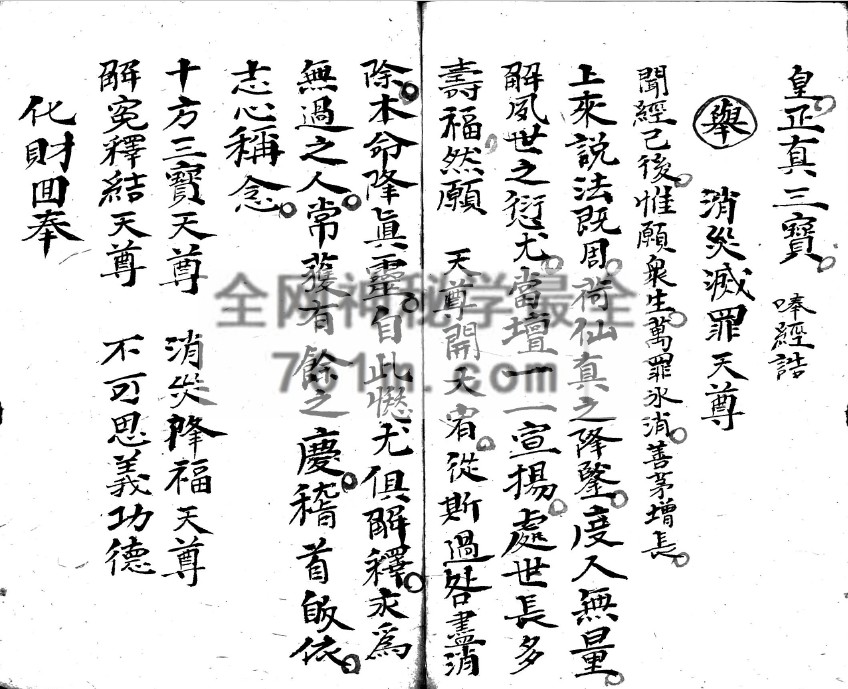 皇正真三寶。 唪經誥
舉 消災滅罪天尊
聞經已後。惟願眾生。萬罪氷消。善芽增長。
上來說法既周。荷仙真之降鑒。度人無量。
解夙世之愆尤。當壇一一宣揚。處世長多
壽福。然願 天尊開大宥。從斯過咎盡消
除。本命降眞靈。自此愆尤俱解釋。永為
無過之人。常獲有餘之慶。稽首皈依。
志心稱念。
十方三寶天尊 消災降福天尊
解冤釋結天尊 不可思義功德
化財回奉
全网神秘学最全